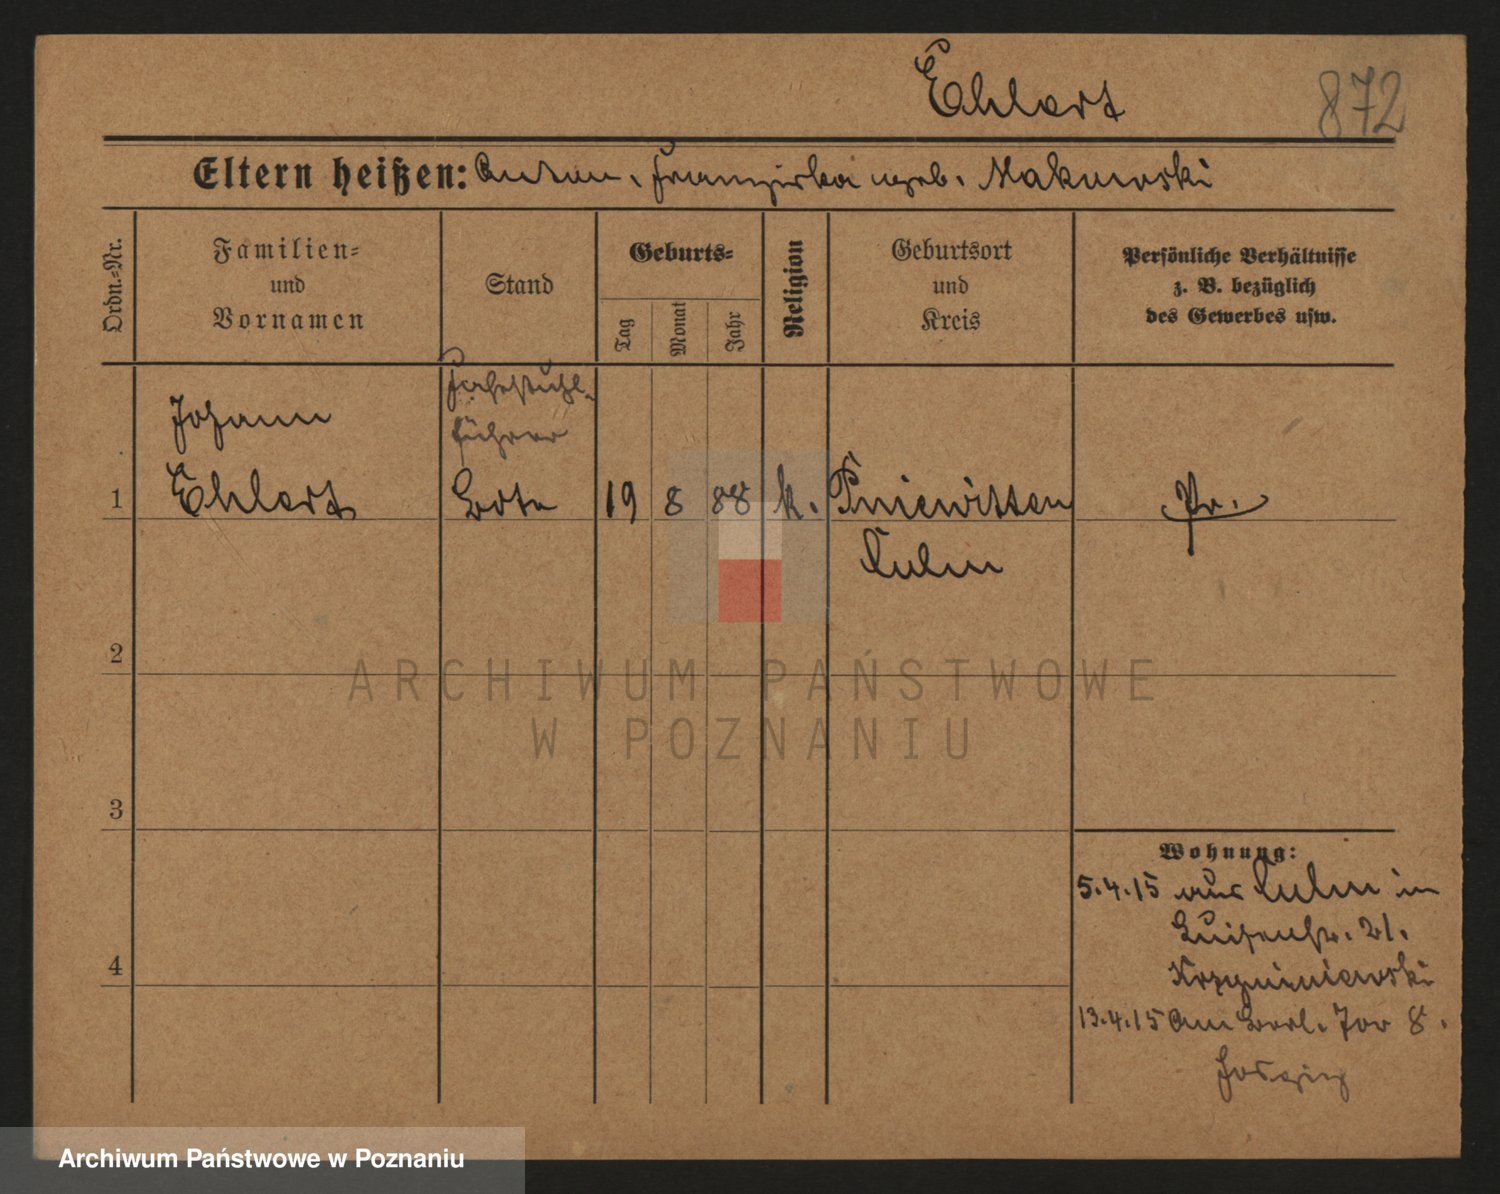 Ehlert
872
Eltern heißen: Anton, Franziska geb. Makowski
Ordn.-Nr.
Familien-
und
Vornamen
Stand
Geburts-
Tag
Monat
Jahr
Religion
Geburtsort
und
Kreis
Persönliche Verhältnisse
z. B. bezüglich
des Gewerbes usw.
Johann
Fahrstuhl-
führer
1 Ehlert Bote 19 8 88 k. Pniewitten Pr.
Culm
2
ARCHIWUM PAŃSTWOWE
W POZNANIU
3
Wohnung:
5.4.15 aus Culm in
Luisenstr. 21.
4
13.4.15 Am Berl. Tor 8.
Archiwum Państwowe w Poznaniu